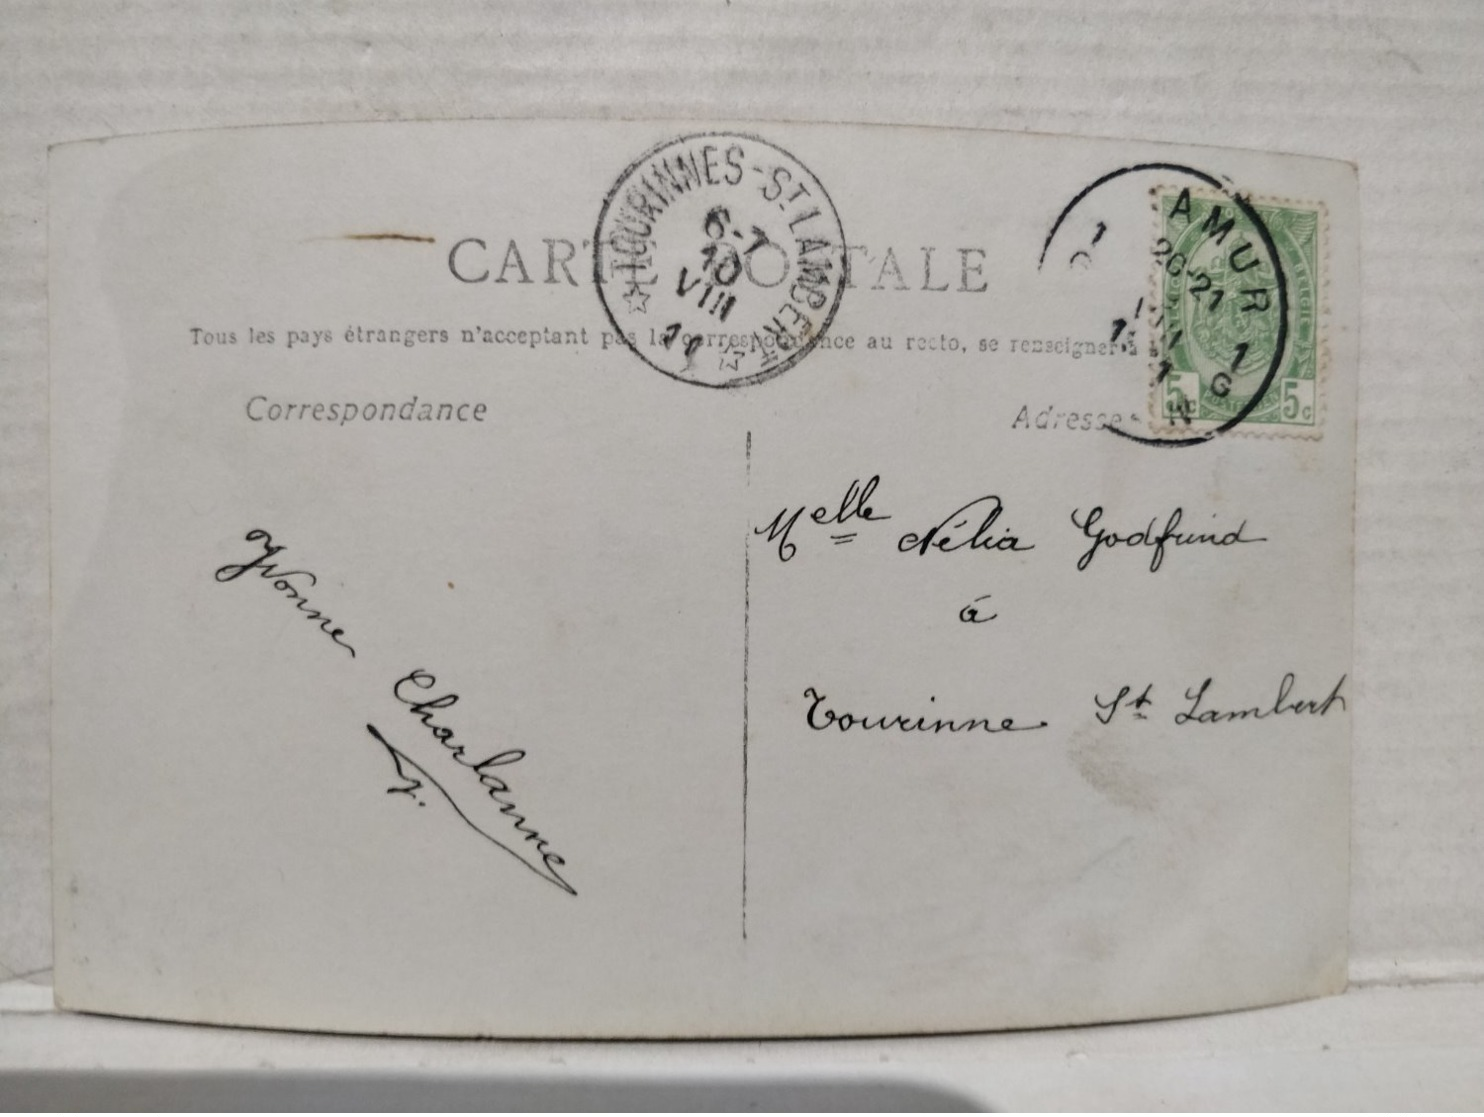 TOURINNES-ST LAMBERT
6-7
10
VIII
11
AMUR
20-21
1
CARTE POSTALE
Tous les pays étrangers n'acceptant pas la correspondance au recto, se renseigner à
Correspondance
Adresse
5c 5c
Melle Nélia Godfrind
à
Tourinne St Lambert
Yvonne Charlanne